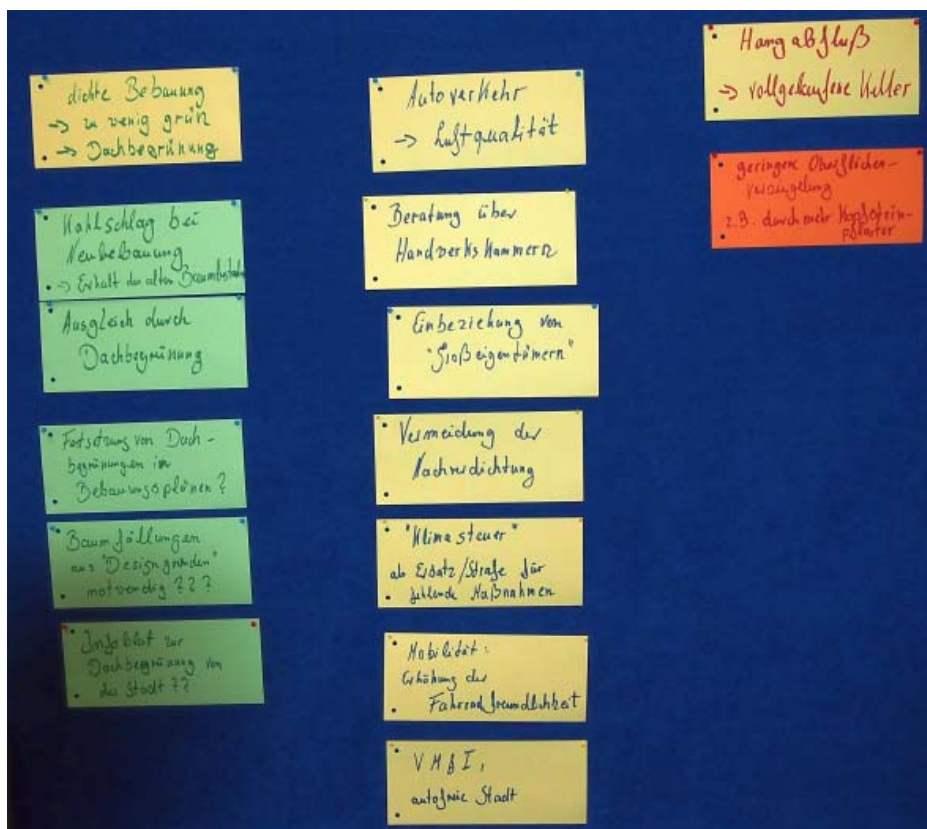 dichte Bebauung
→ zu wenig grün
→ Dachbegrünung
Kahlschlag bei
Neubebauung
→ Erhalt des alten Baumbestands
Ausgleich durch
Dachbegrünung
Fortsetzung von Dach-
begrünungen in
Bebauungsplänen?
Baumfällungen
aus "Designgründen"
notwendig???
Infoblatt zur
Dachbegrünung von
der Stadt??
Autoverkehr
→ Luftqualität
Beratung über
Handwerkskammern
Einbeziehung von
"Großeigentümern"
Vermeidung der
Nachverdichtung
"Klimasteuer"
als Ersatz/Strafe für
fehlende Maßnahmen
Mobilität:
Erhöhung der
Fahrradfreundlichkeit
autofreie Stadt
Hangabfluß
→ vollgelaufene Keller
geringere Oberflächen-
versiegelung
z.B. durch mehr Kopfstein-
pflaster